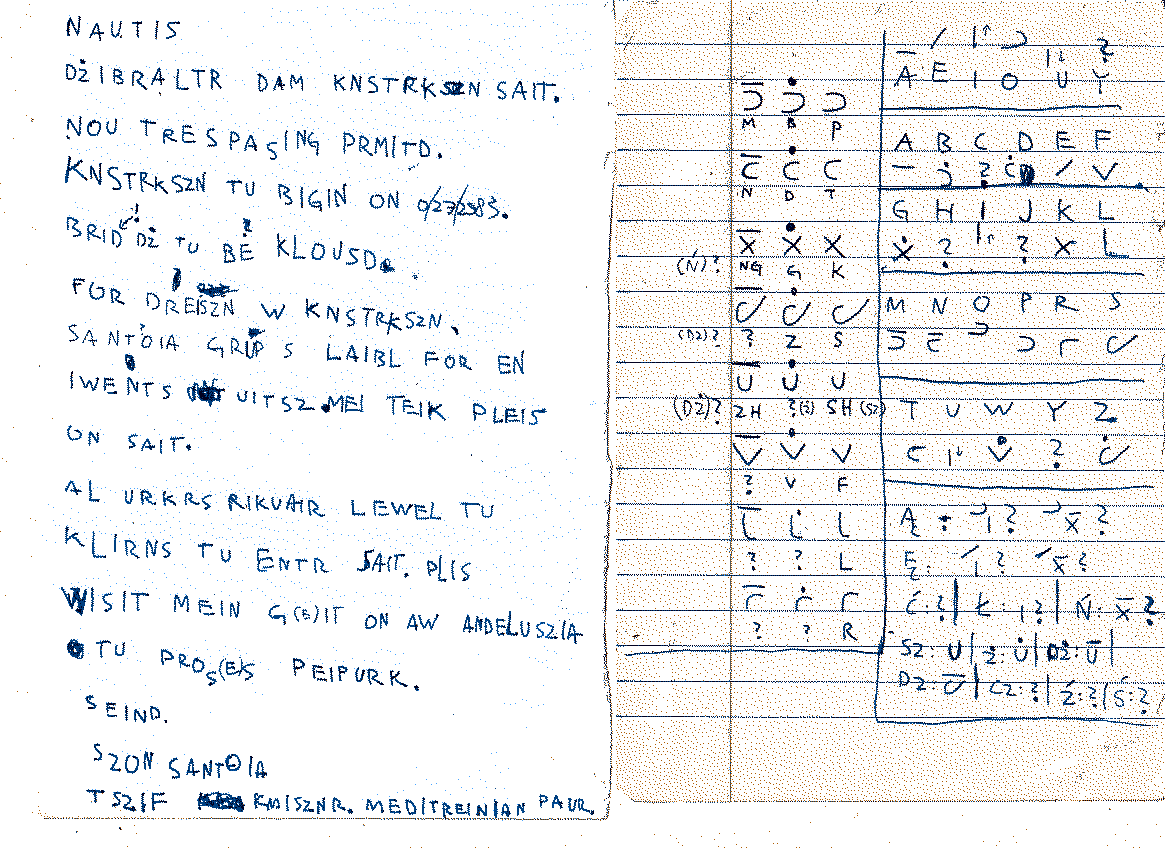 NAUTIS
DŻIBRALTR DAM KNSTRKSZN SAIT.
NOU TRESPASING PRMITD.
KNSTRKSZN TU BIGIN ON 0/27/2383.
BRID DŻ TU BE KLOUSD.
FOR DREISZN W KNSTRKSZN.
SANTOIA GRUP S LAIBL FOR EN
IWENTS UITSZ MEI TEIK PLEIS
ON SAIT.
AL URKRS RIKUAIR LEWEL TU
KLIRNS TU ENTR SAIT. PLIS
WISIT MEIN G(E)IT ON AW ANDELUSZIA
TU PROS(E)S PEIPURK.
SEIND.
SZON SANTOIA
TSZIF KMISZNR. MEDITREINIAN PAUR.
M B P
N D T
(Ń)? NG G K
(DZ)? ? Z S
(DŻ)? ZH ?(Ż) SH (SZ)
? V F
? ? L
? ? R
A E I O U Y
A B C D E F
G H I J K L
M N O P R S
T U W Y Z
Ą
Ę:
Ć:? Ł: Ń:
SZ: Ż: DŻ:
DZ: CZ:? Ź:? Ś:?